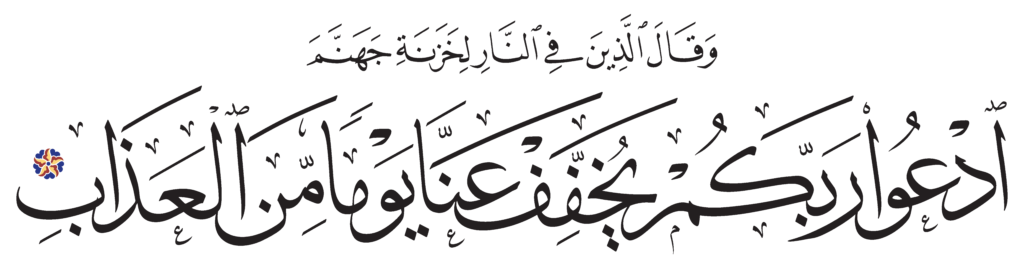 وَقَالَ ٱلَّذِينَ فِي ٱلنَّارِ لِخَزَنَةِ جَهَنَّمَ
ٱدْعُوا۟ رَبَّكُمْ يُخَفِّفْ عَنَّا يَوْمًا مِّنَ ٱلْعَذَابِ